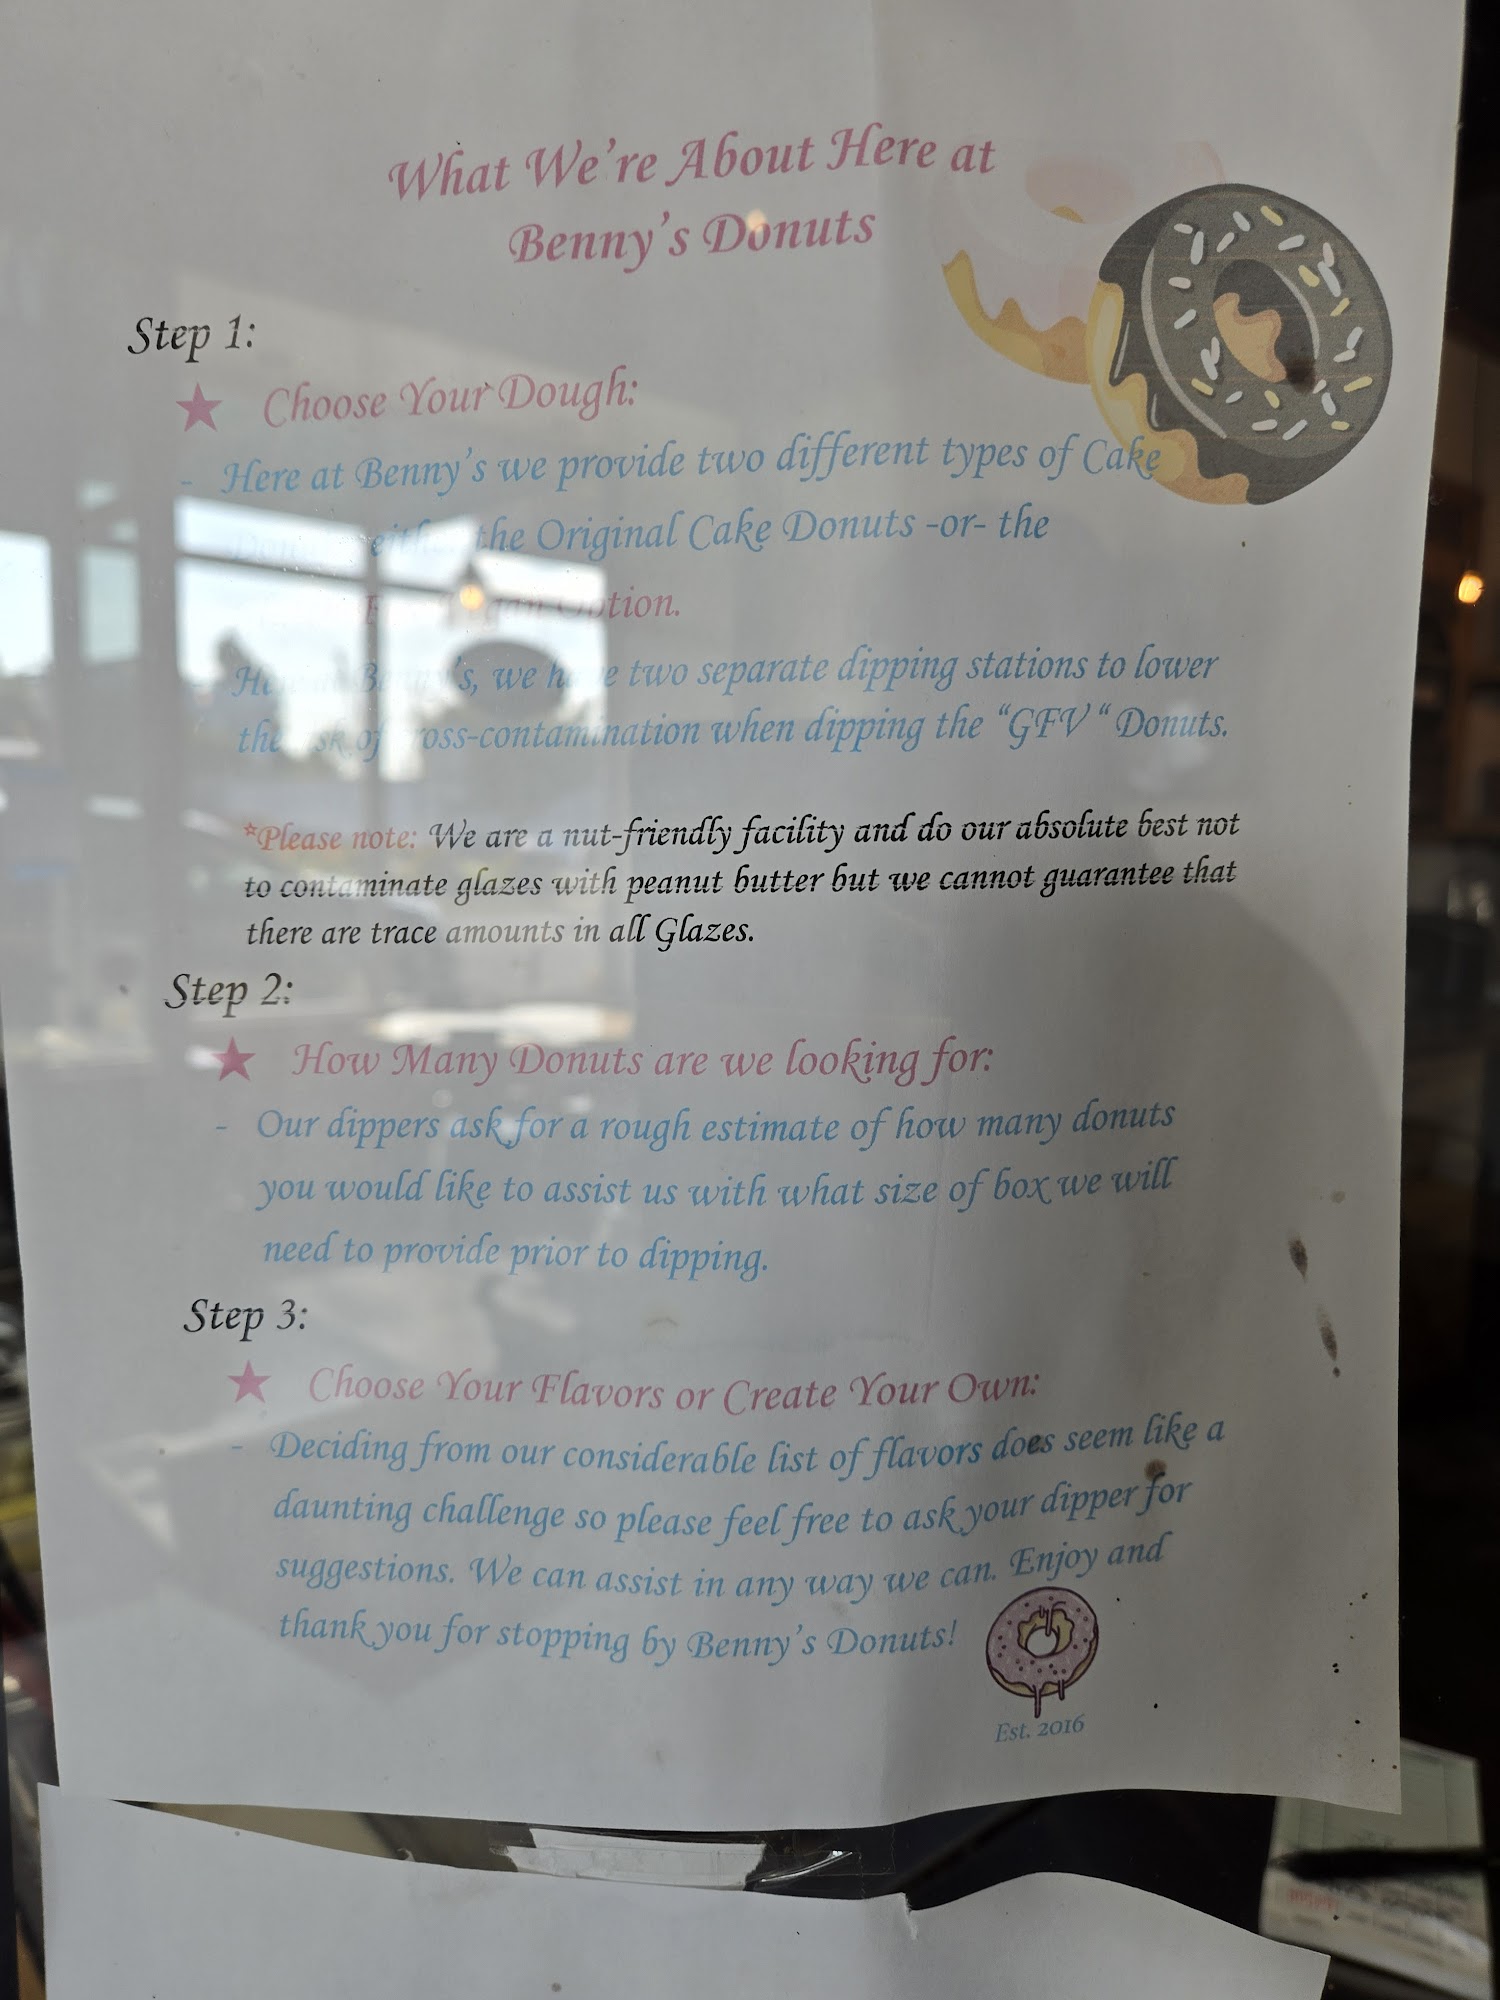 What We're About Here at
Benny's Donuts
Step 1:
Choose Your Dough:
- Here at Benny's we provide two different types of Cake
either the Original Cake Donuts -or- the
Option.
Here at Benny's, we have two separate dipping stations to lower
the risk of cross-contamination when dipping the "GFV" Donuts.
*Please note: We are a nut-friendly facility and do our absolute best not
to contaminate glazes with peanut butter but we cannot guarantee that
there are trace amounts in all Glazes.
Step 2:
How Many Donuts are we looking for:
- Our dippers ask for a rough estimate of how many donuts
you would like to assist us with what size of box we will
need to provide prior to dipping.
Step 3:
Choose Your Flavors or Create Your Own:
- Deciding from our considerable list of flavors does seem like a
daunting challenge so please feel free to ask your dipper for
suggestions. We can assist in any way we can. Enjoy and
thank you for stopping by Benny's Donuts!
Est. 2016